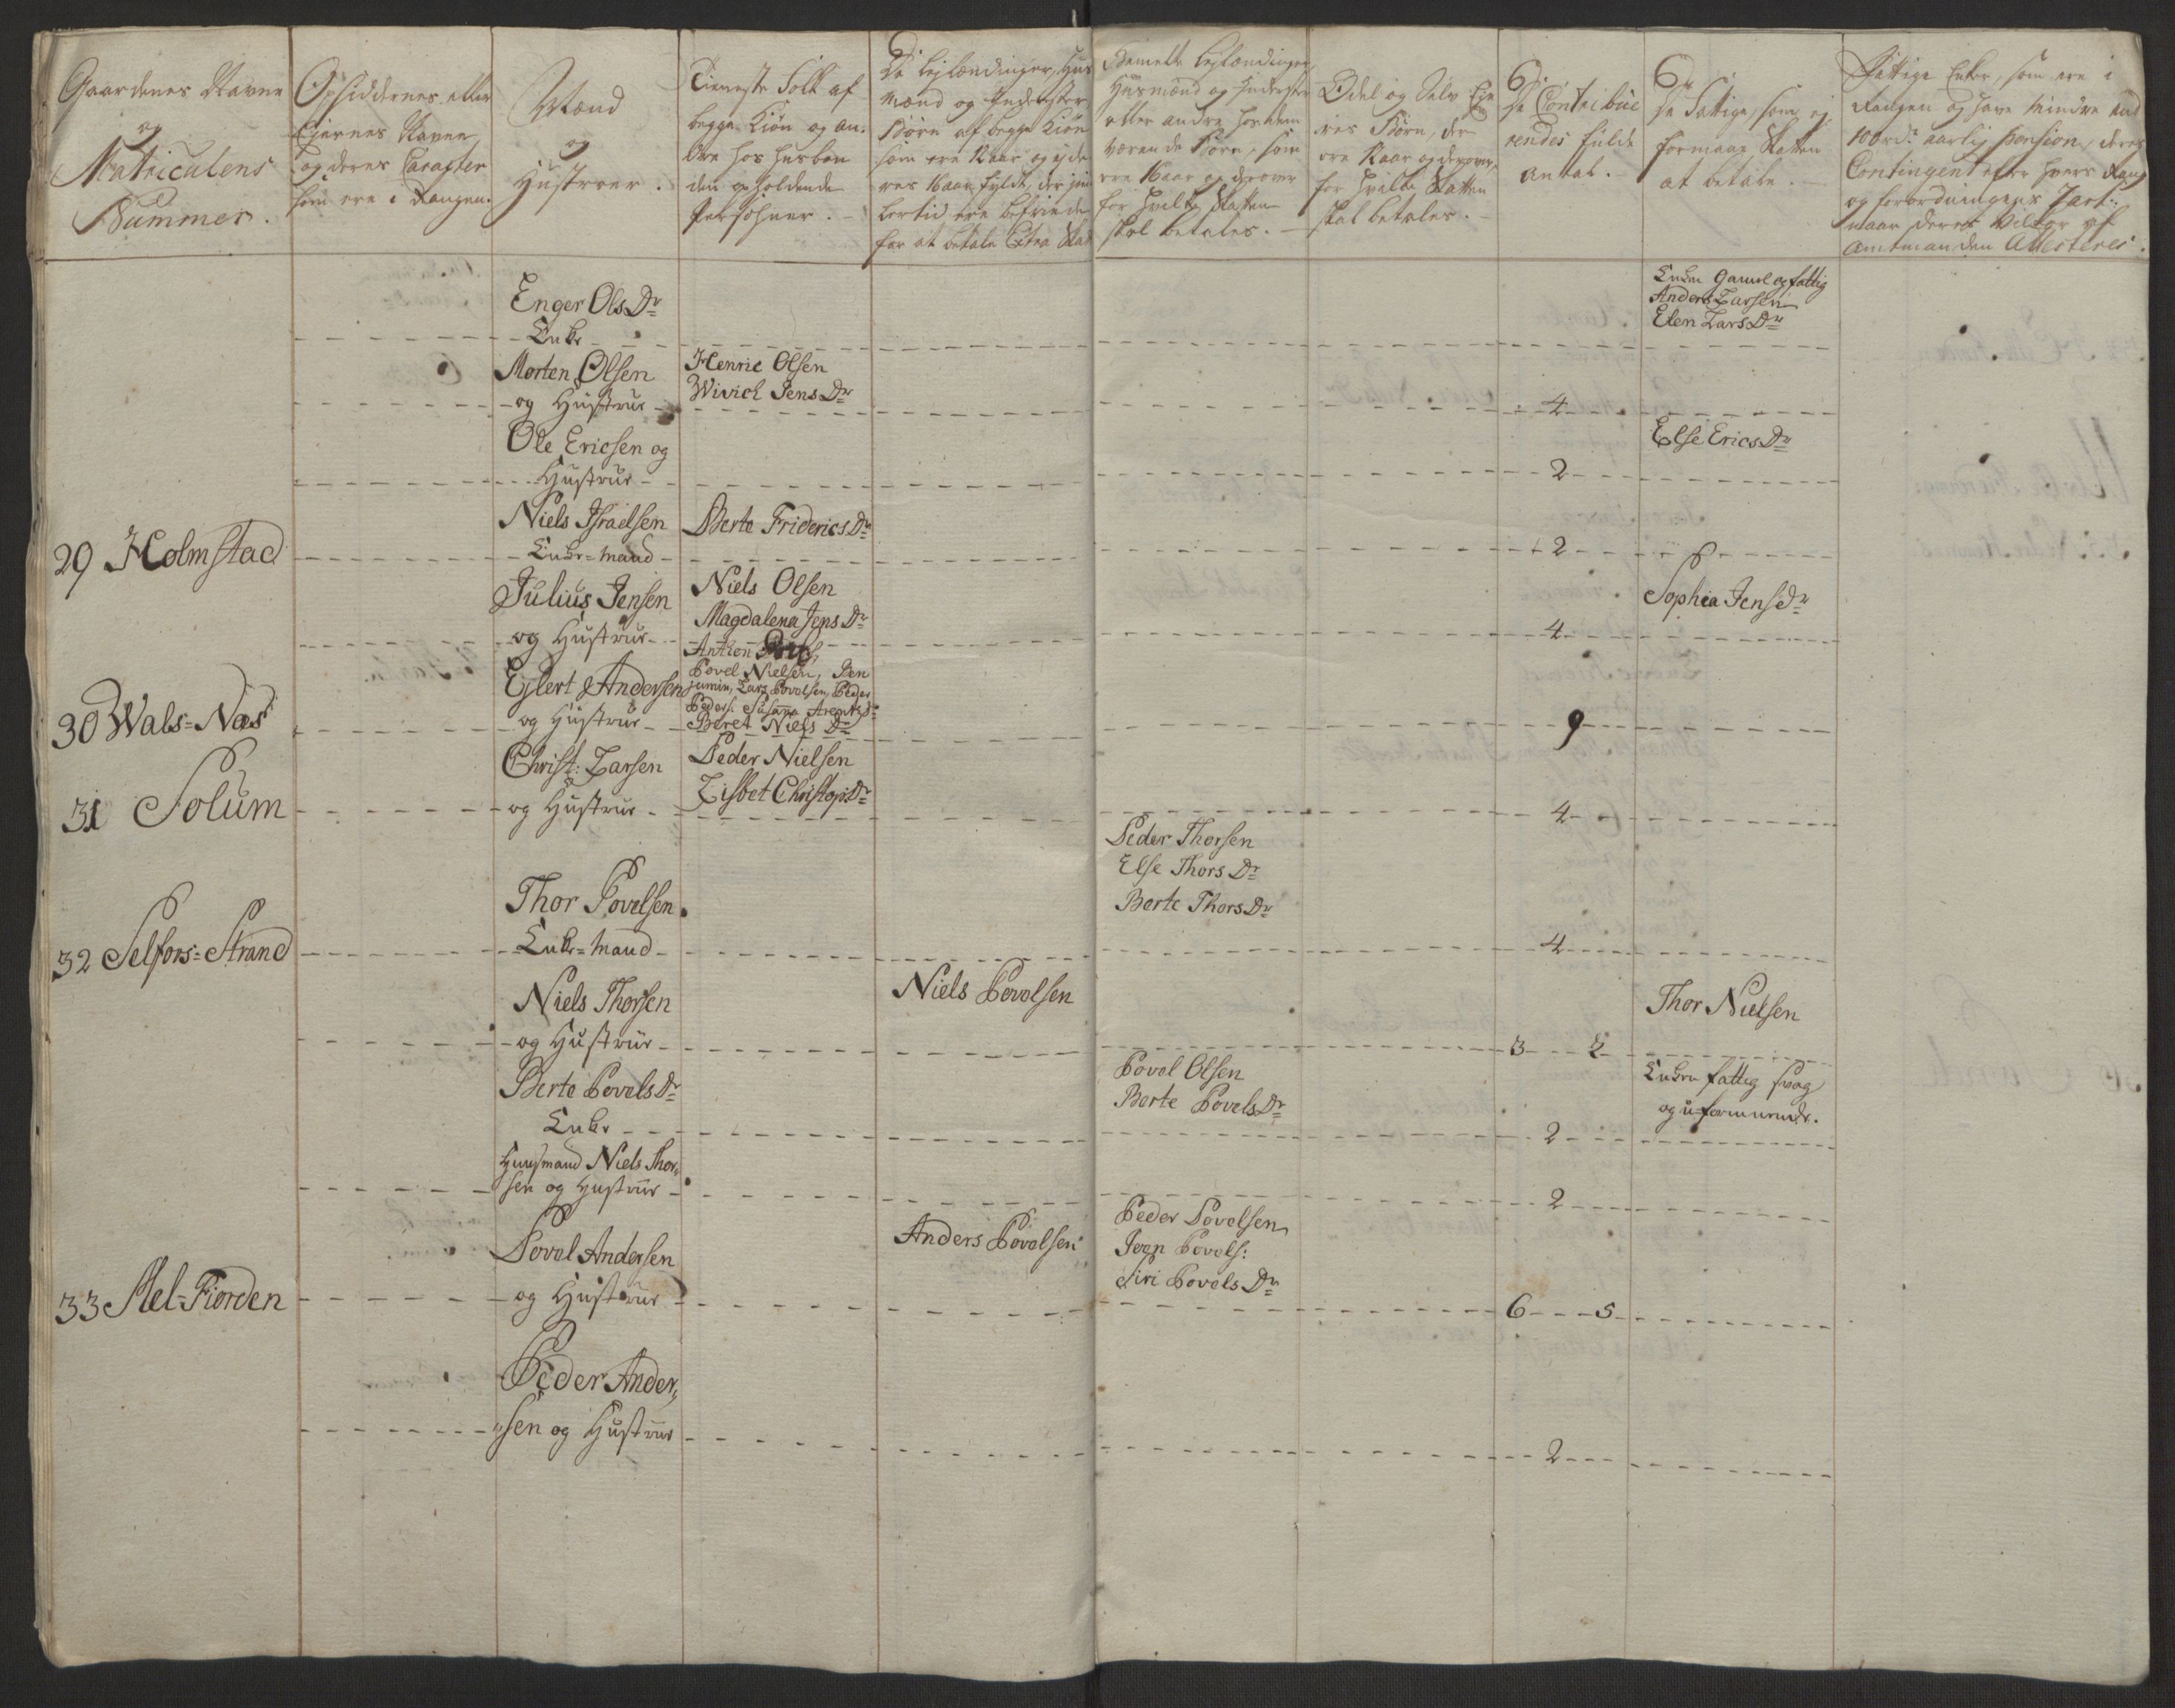 Gaardenes Navne
og
Matriculens
Nummer.
Opsiddernes eller
Ejernes Navne
og deres Caracter
som ere i Rangen.
Mænd
og
Hustroer.
Tieneste Folk af
begge Kiøn og an-
dre hos husbon
den op holdende
Persohner.
De Lejlændinger, Huus
mænd og Inderster
Børn af begge Kiøn
som ere 12 aar og ej de
res 16 aar fyldt, der im
lertid ere befriede
for at betale Extra Skat
Bemelte Lejlændinger
Huusmænd og Inderster
eller andre hos dem
værende Børn, som
ere 16 aar og derover
for hvilke Skatten
skal betales.
Odel og Selv Eje
res Børn, der
ere 12 aar og derover,
for hvilke Skatten
skal betales.
De Contribue
rendes fulde
antal.
De Fattige, som ej
formaae Skatten
at betale.
Fattige Enker, som ere i
Rangen og have mindre end
100 rd. aarlig Pension, deres
Contingent efter hvers Rang
og forordningens
naar deres Vilkor af
Amtmanden Attesteres.
Enger Ols Dr
Enke
Enken Gamel og fattig
Anders Larsen
Elen Lars Dr
Morten Olsen
og Hustrue
Henric Olsen
Wivich Jens Dr
4
Ole Ericsen og
Hustrue
2
Else Erics Dr
29 Holmstad
Niels Israelsen
Enke-mand
Berte Friderics Dr
2
Julius Jensen
og Hustrue
Niels Olsen
Magdalena Jens Dr
4
Sophia Jens Dr
30 Wals-Næs
Ejlert Andersen
og Hustrue
Anthon
Povel Nielsen, Ben
jamin, Lars Povelsen, Peder
Peders. Susana Arents Dr
Beret Niels Dr
9
31 Solum
Christ: Larsen
og Hustrue
Peder Nielsen
Lisbet Christop: Dr
4
32 Selfors-Strand
Thor Povelsen
Enke-mand
Peder Thorsen
Else Thors Dr
Berte Thors Dr
4
Niels Thorsen
og Hustrue
Niels Povelsen
3 2
Thor Nielsen
Berte Povels Dr
Enke
Povel Olsen
Berte Povels Dr
2
Enken fattig svag
og u-formuende.
Huusmand Niels Thor-
sen og Hustrue
2
33 Mel-Fiorden
Povel Andersen
og Hustrue
Anders Povelsen
Peder Povelsen
Iver Povels:
Siri Povels Dr
6 5
Peder Ander-
sen og Hustrue
2